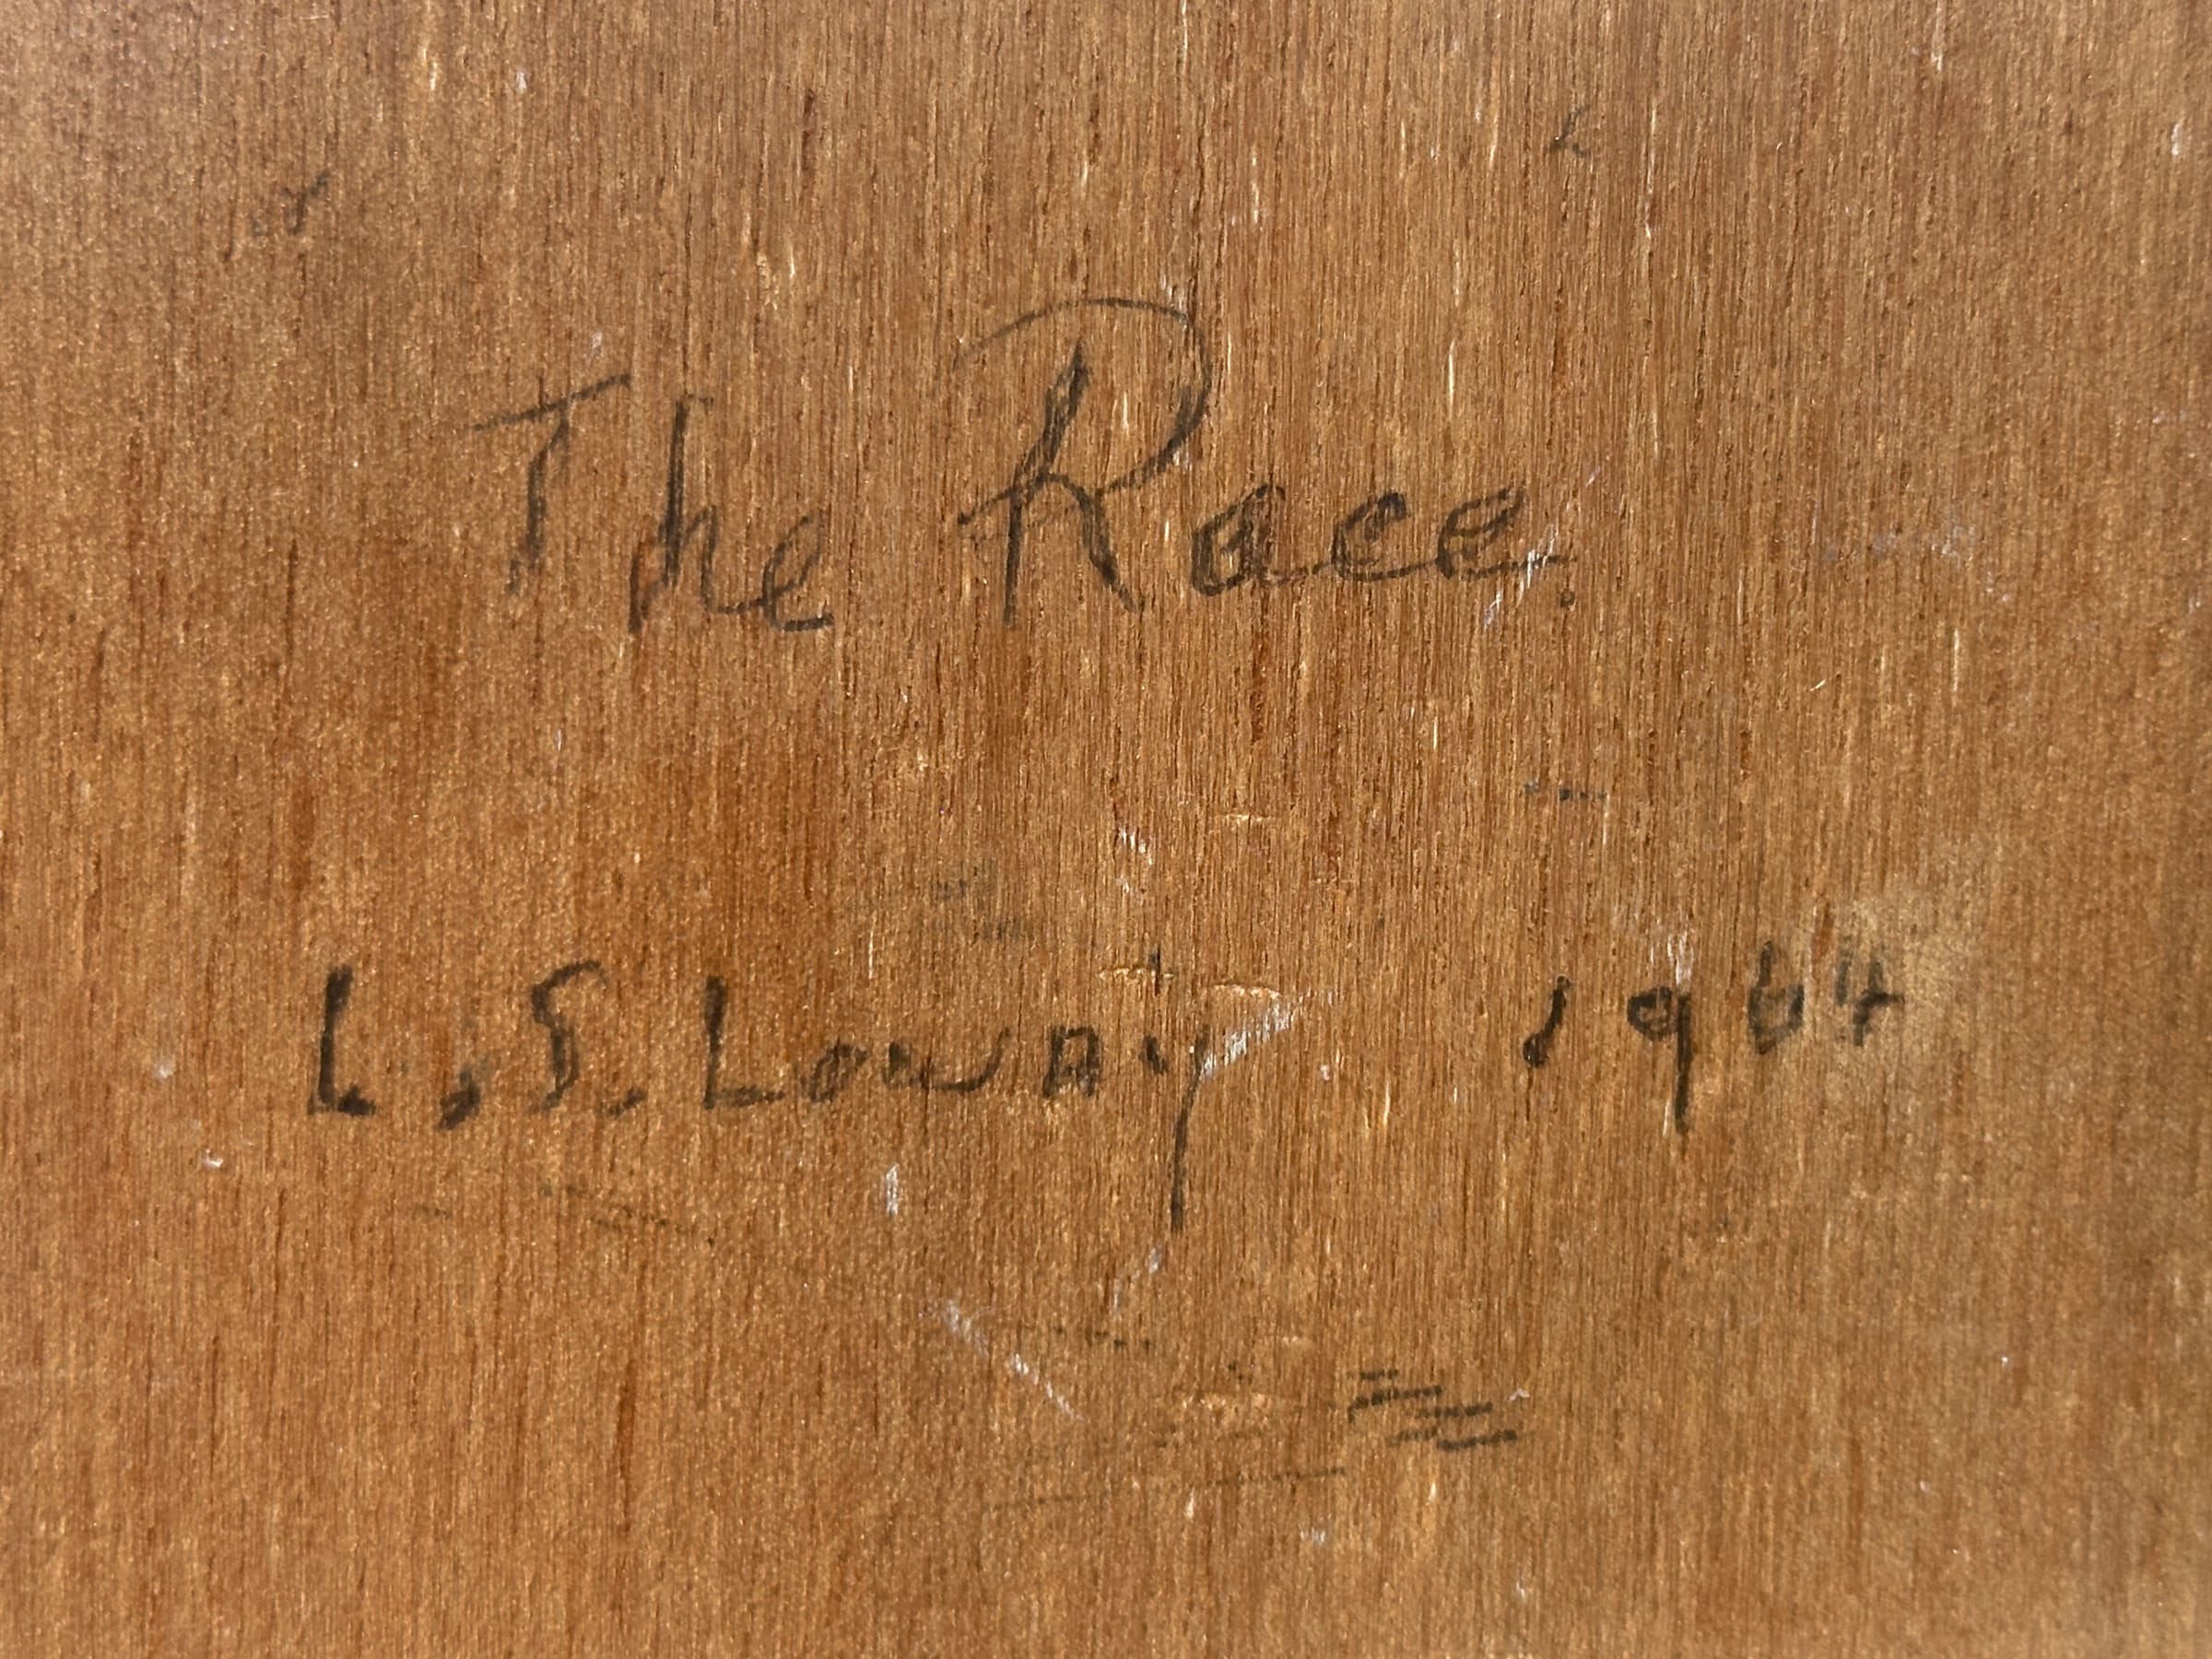 The Race.
L.S. Loway 1964